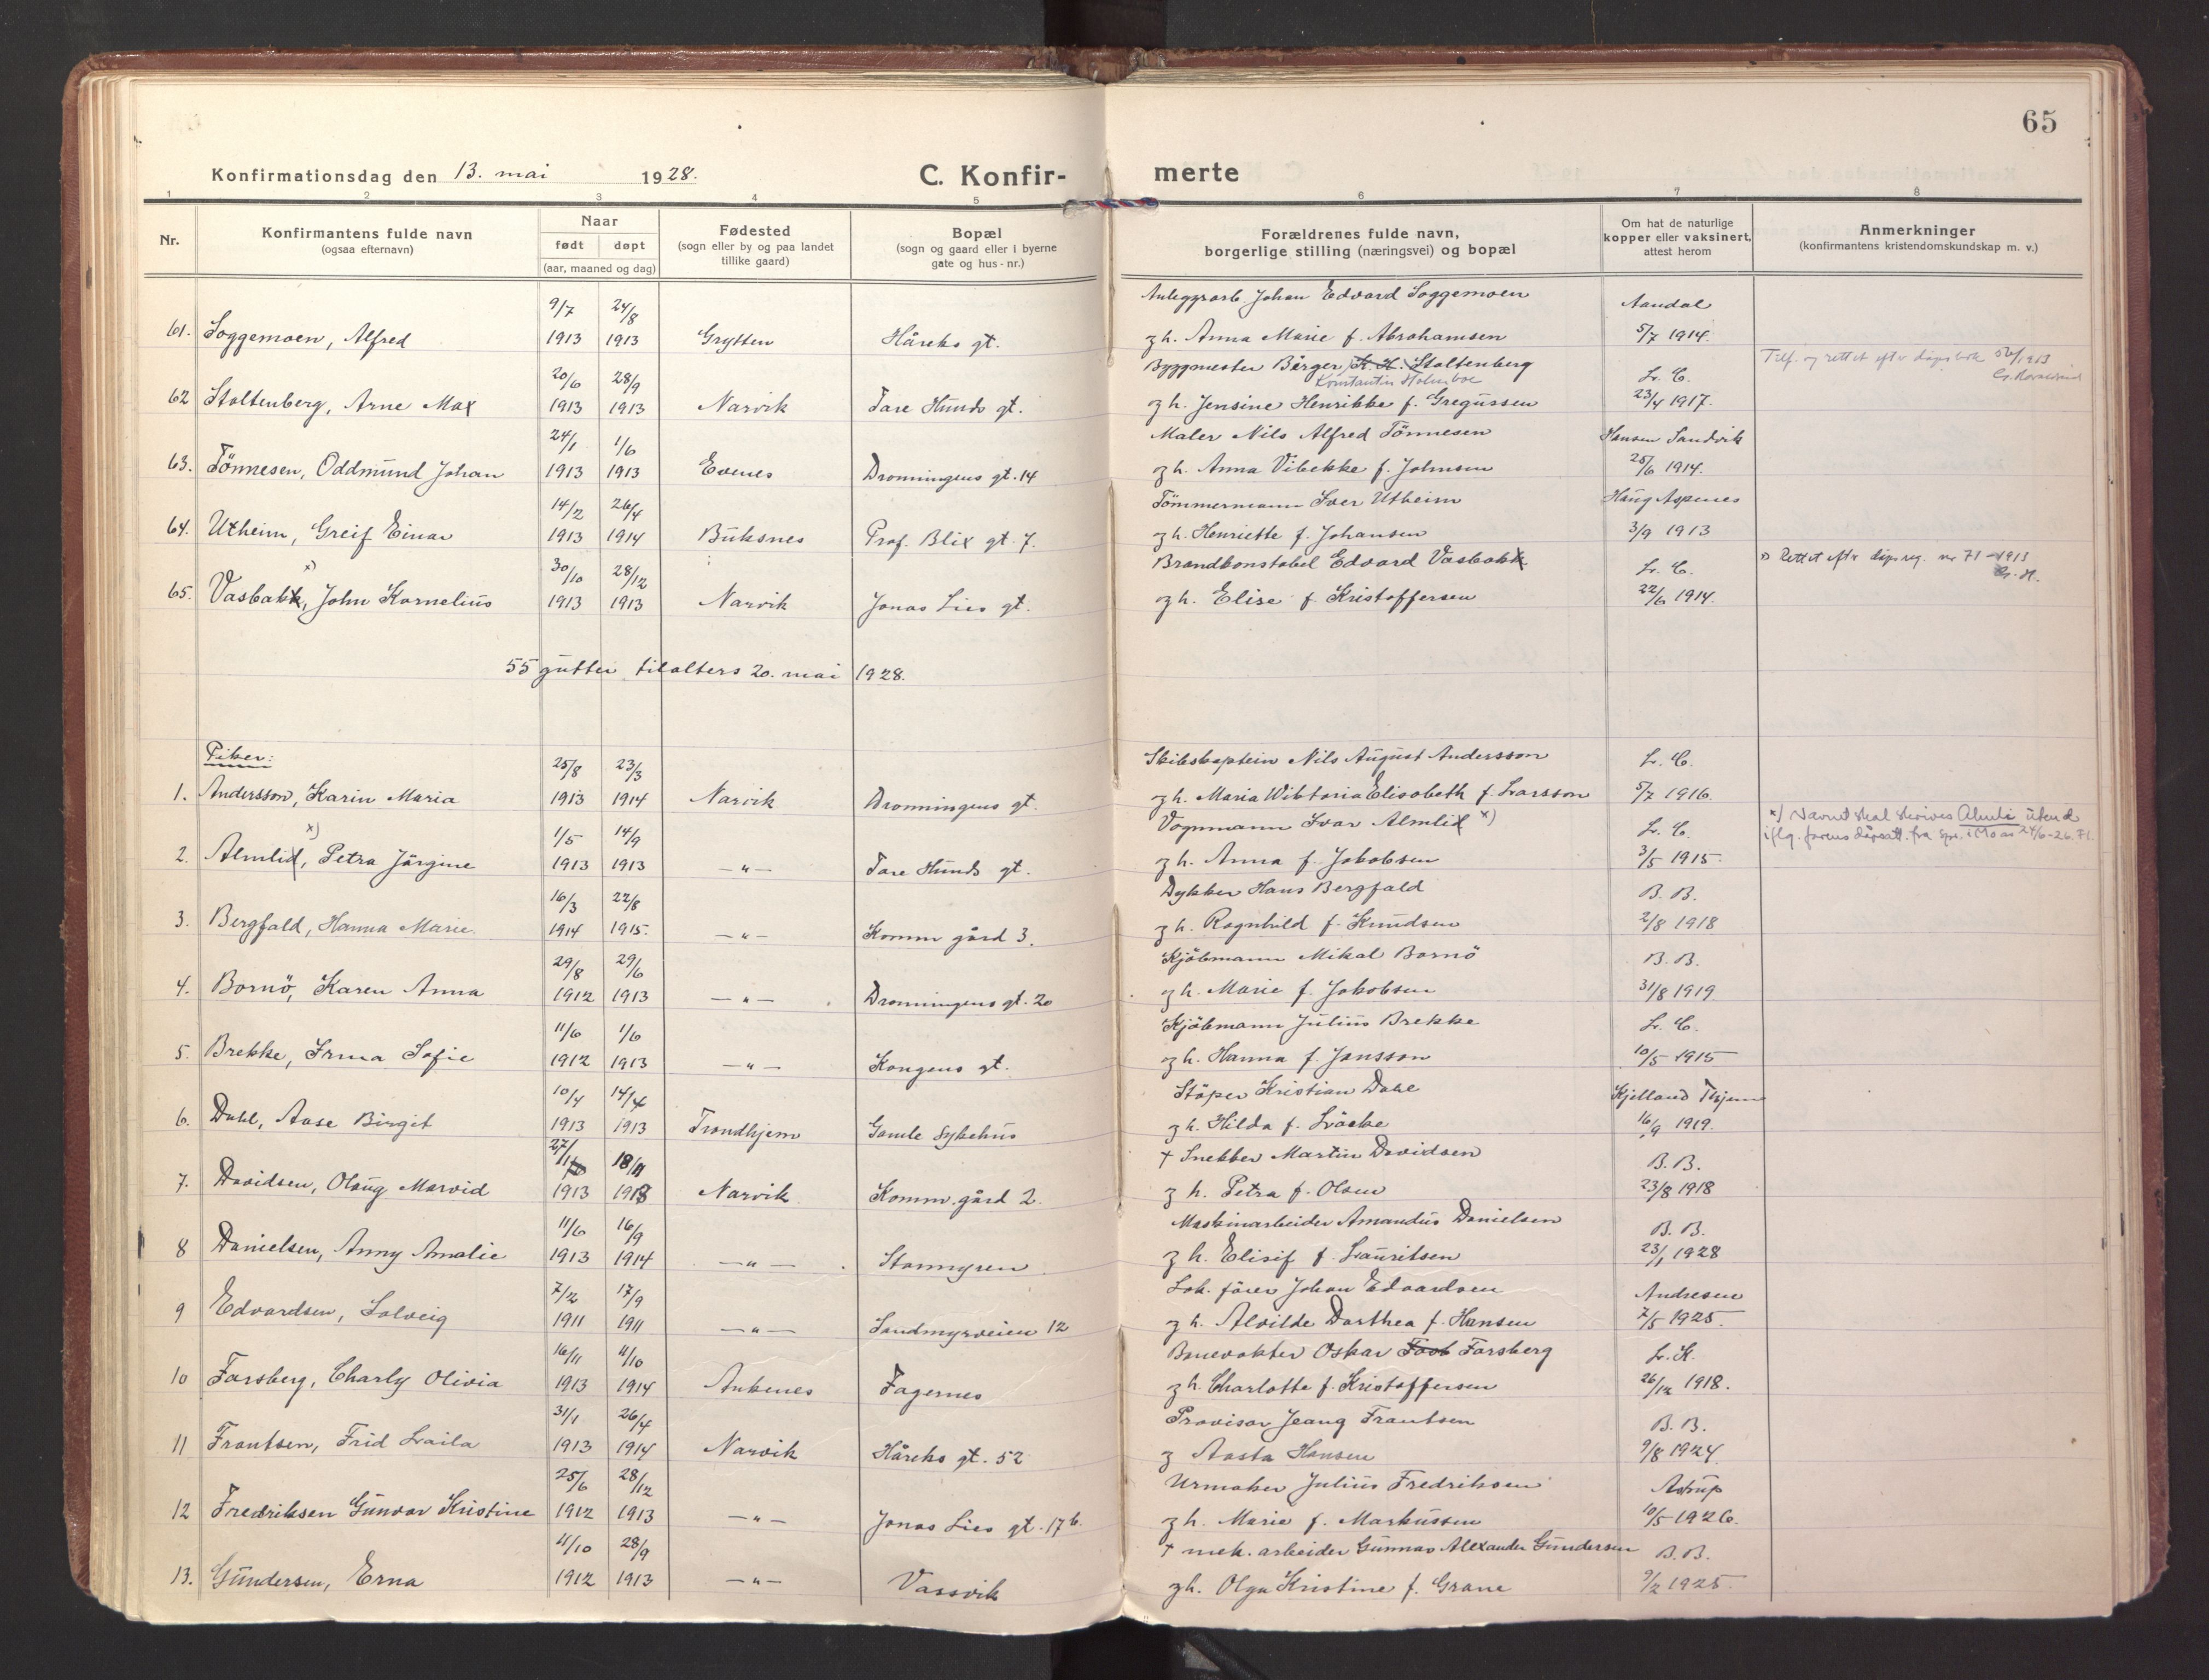 65
Konfirmationsdag den 13. mai 1928.
C. Konfirmerte
1 2 3 4 5 6 7 8
Nr.
Konfirmantens fulde navn
(ogsaa efternavn)
Naar
født døpt
(aar, maaned og dag)
Fødested
(sogn eller by og paa landet
tillike gaard)
Bopæl
(sogn og gaard eller i byerne
gate og hus-nr.)
Forældrenes fulde navn,
borgerlige stilling (næringsvei) og bopæl
Om hat de naturlige
kopper eller vaksinert,
attest herom
Anmerkninger
(konfirmantens kristendomskundskap m. v.)
9/7 24/8 Anleggsarb. Johan Edvard Soggemoen Aandal
61. Soggemoen, Alfred 1913 1913 Grytten Håreks gt. og h. Anna Marie f. Abrahamsen 5/7 1914.
20/6 28/9 Byggmester Birger K. H. Stoltenberg L. C. Tilf. og rettet efter dåpsbok
Konstantin Holmboe
62 Stoltenberg, Arne Max 1913 1913 Narvik Tore Hunds gt. og h. Jensine Henrikke f. Gregussen 23/4 1917.
24/1 1/6 Maler Nils Alfred Tönnesen Hansen Sandvik
63. Tönnesen, Oddmund Johan 1913 1913 Evenes Dronningens gt. 14 og h. Anna Vibekke f. Johnsen 25/6 1914.
14/2 26/4 Tömmermann Iver Utheim Haug Aspenes
64. Utheim, Greif Einar 1913 1914 Buksnes Prof. Blix gt. 7. og h. Henriette f. Johansen 3/9 1913
x) 30/10 28/12 Brandkonstabel Edvard Vasbakk L. C. x) Rettet efter dåpsreg. nr 71 - 1913
65. Vasbakk, John Kornelius 1913 1913 Narvik Jonas Lies gt. og h. Elise f. Kristoffersen 22/6 1914.
55 gutter tilalters 20. mai 1928.
Piker:
25/8 23/3 Skibskaptein Nils August Andersson L. C.
1. Andersson, Karin Maria 1913 1914 Narvik Dronningens gt. og h. Maria Wiktoria Elisabeth f. Larsson 5/7 1916.
x) 1/5 14/9 Vognmann Ivar Almlid x) L. C. x) Navnet skal skrives Almli uten d
iflg. farens dåpsatt. fra spr. i Mo av 24/6-26.
2. Almlid, Petra Jörgine 1913 1913 —"— Tore Hunds gt. og h. Anna f. Jakobsen 3/5 1915.
16/3 22/8 Dykker Hans Bergfald B. B.
3. Bergfald, Hanna Marie. 1914 1915. —"— Komm gård 3. og h. Ragnhild f. Knudsen 2/8 1918
29/8 29/6 Kjöbmann Mikal Bornö B. B.
4. Bornö, Karen Anna 1912 1913 —"— Dronningens gt. 20 og h. Marie f. Jakobsen 31/8 1919
11/6 1/6 Kjöbmann Julius Brekke L. C.
5. Brekke, Irma Sofie 1912 1913 —"— Kongens gt. og h. Hanna f. Jansson 10/5 1915
10/4 14/4 Stöper Kristian Dahl Kjelland Thjem
6. Dahl, Aase Birgit 1913 1913 Trondhjem Gamle Sykehus og h. Hilda f. 16/9 1919.
27/11 18/11 † Snekker Martin Davidsen B. B.
7. Davidsen, Olaug Marvid 1913 1918 Narvik Komm. gård 2. og h. Petra f. Olsen 23/8 1918
11/6 16/9 Maskinarbeider Amandus Danielsen B. B.
8 Danielsen, Anny Amalie 1913 1914 —"— Stormyren og h. Elisif f. Lauritsen 23/1 1928
7/12 17/9 Lok. förer Johan Edvardsen Andresen
9 Edvardsen, Solveig 1911 1911 —"— Sandmyrveien 12 og h. Alvilde Dorthea f. Hansen 7/5 1925.
16/11 11/10 Banevokter Oskar Forsberg L. K.
10 Forsberg, Charly Olivia 1913 1914 Ankenes Fagernes og h. Charlotte f. Kristoffersen 26/12 1918.
31/1 26/4 Provisor Jeang Frantsen B. B.
11 Frantsen, Frid Laila 1913 1914 Narvik Håreks gt. 52 og Aasta Hansen 9/8 1924.
25/6 28/12 Urmaker Julius Fredriksen Astrup
12 Fredriksen Gunvor Kristine 1912 1913 —"— Jonas Lies gt. 17 b. og h. Marie f. Markussen 10/5 1926.
11/10 28/9 † mek. arbeider Gunnar Alexander Gundersen B. B.
13. Gundersen, Erna 1912 1913 —"— Vassvik og h. Olga Kristine f. Grane 9/2 1925.